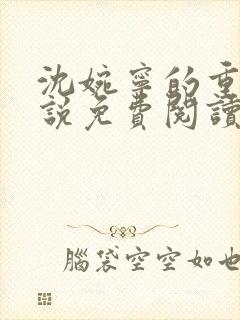 沈婉寧的重
說免費閱讀
腦袋空空如也